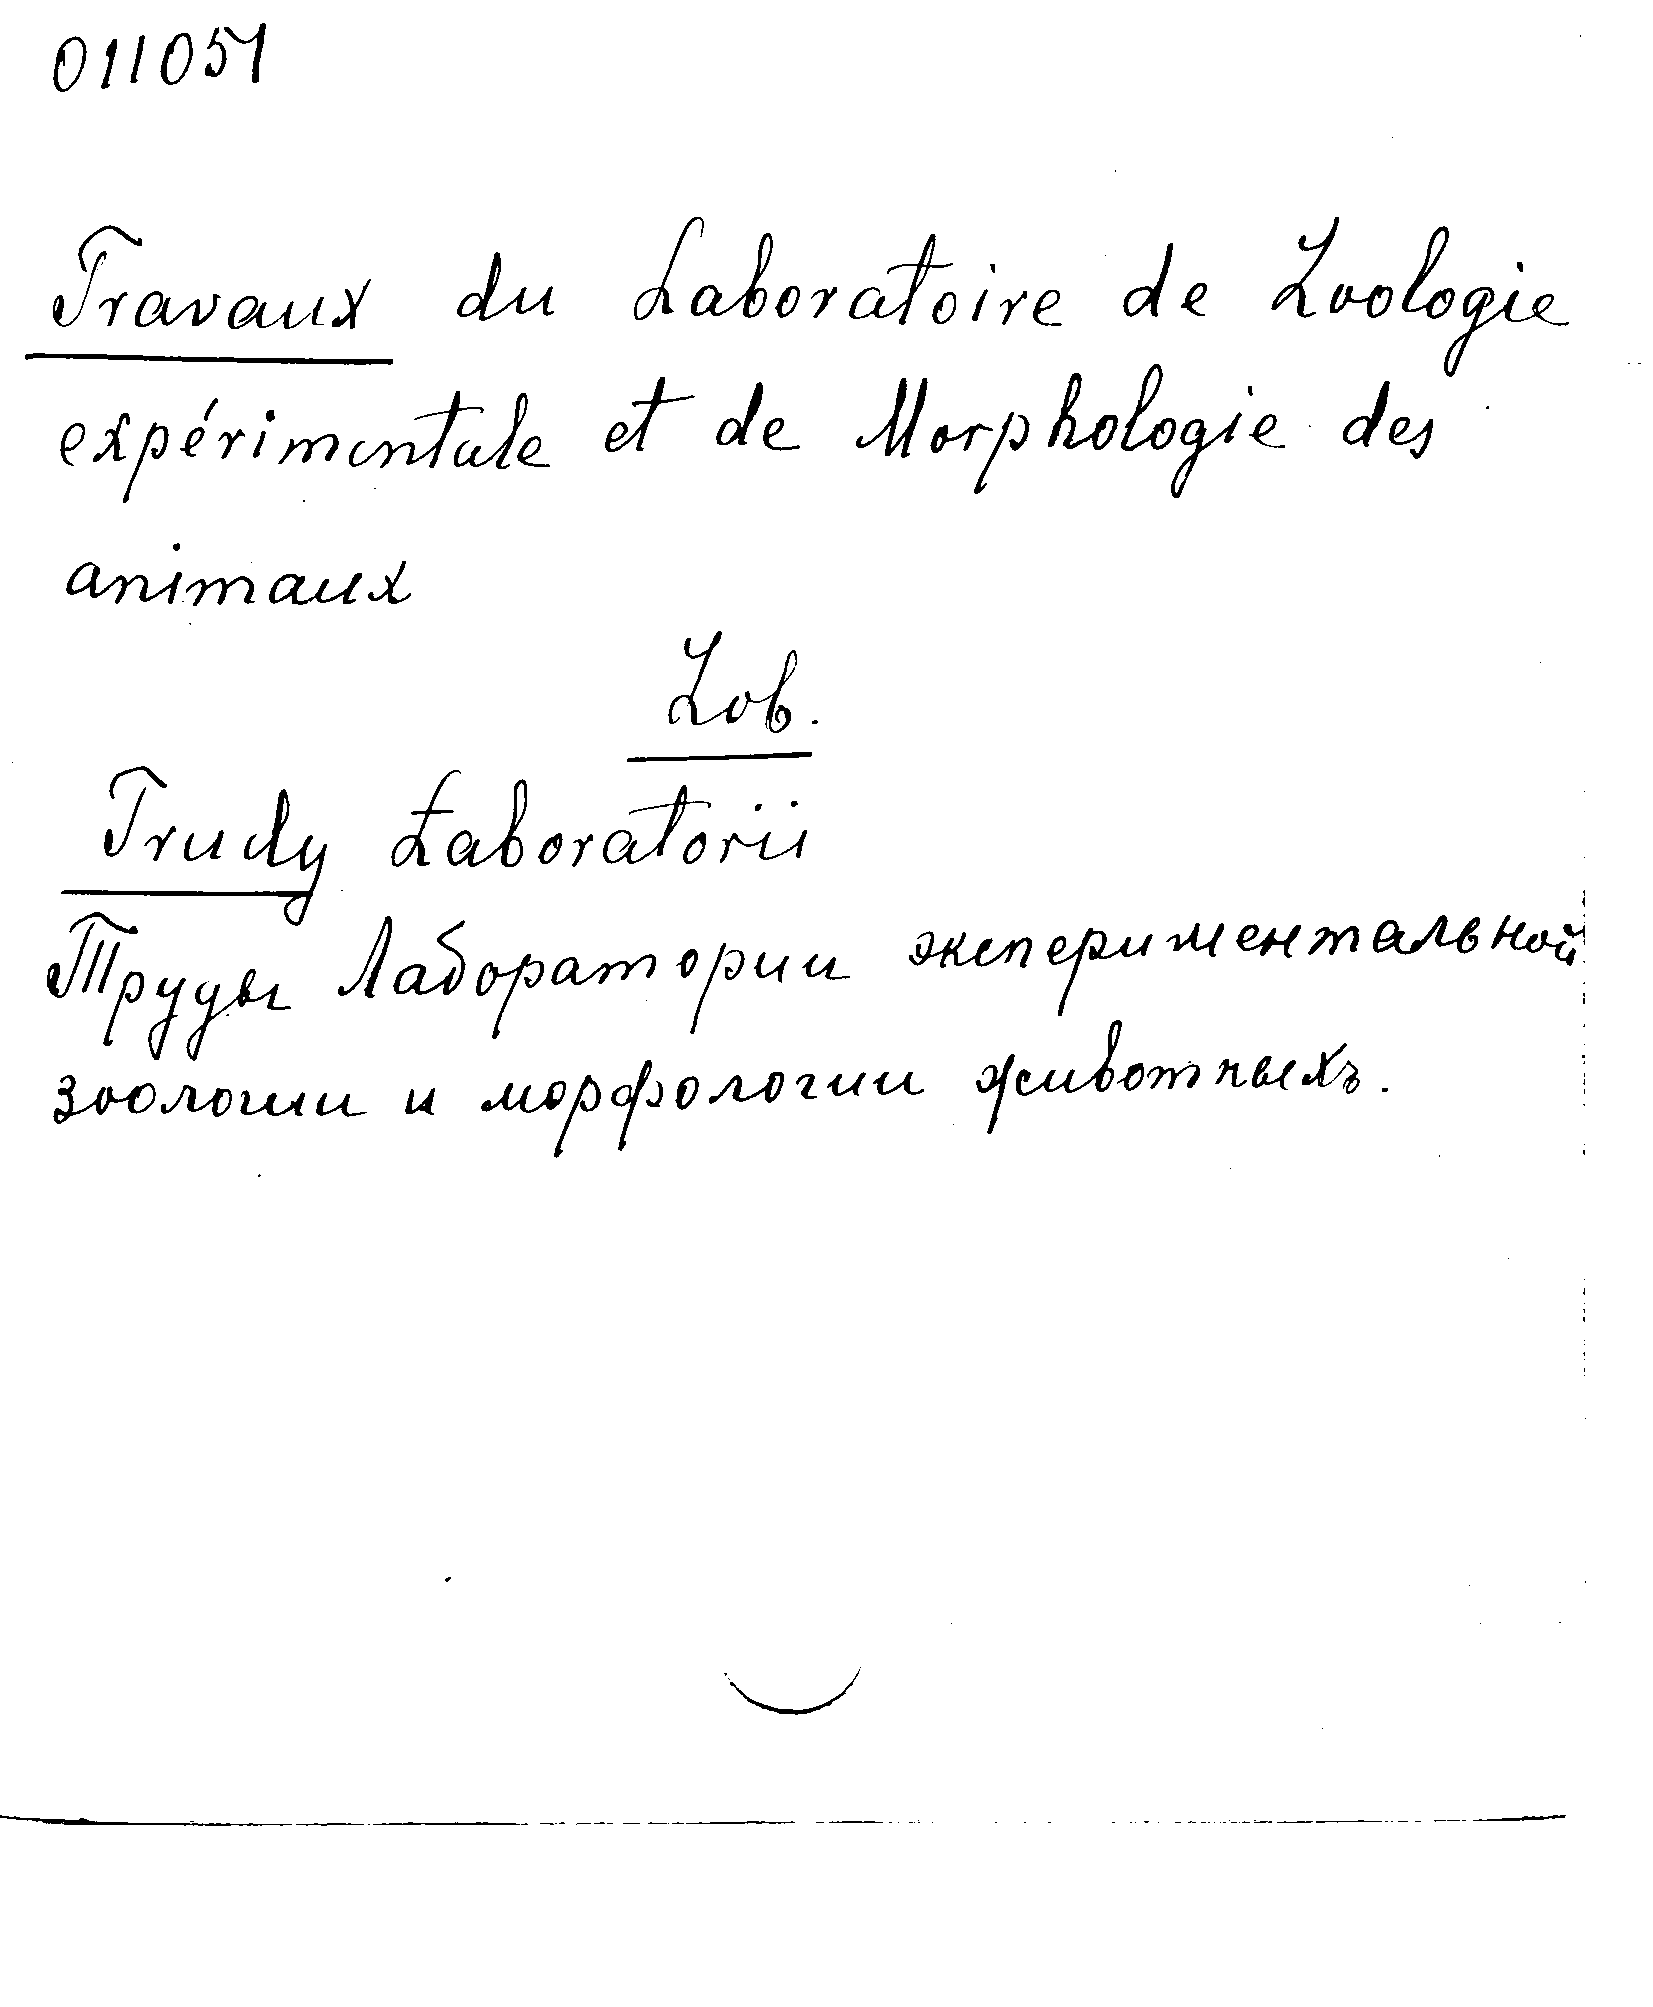 011051
Travaux du Laboratoire de Zoologie
expérimentale et de Morphologie des
animaux
Zob.
Trudy Laboratorii
Труды Лаборатории экспериментальной
зоологии и морфологии животныхъ.